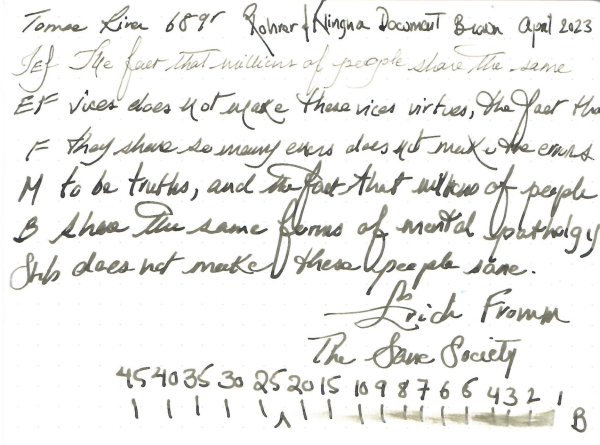 Tomoe River 68gr Rohrer & Klingner Document Brown April 2023
IEF The fact that millions of people share the same
EF vices does not make these vices virtues, the fact tha
F they share so many errors does not make the errors
M to be truths, and the fact that millions of people
B share the same forms of mental pathology
Stub does not make these people sane.
Erich Fromm
The Sane Society
45 40 35 30 25 20 15 10 9 8 7 6 5 4 3 2 1
B